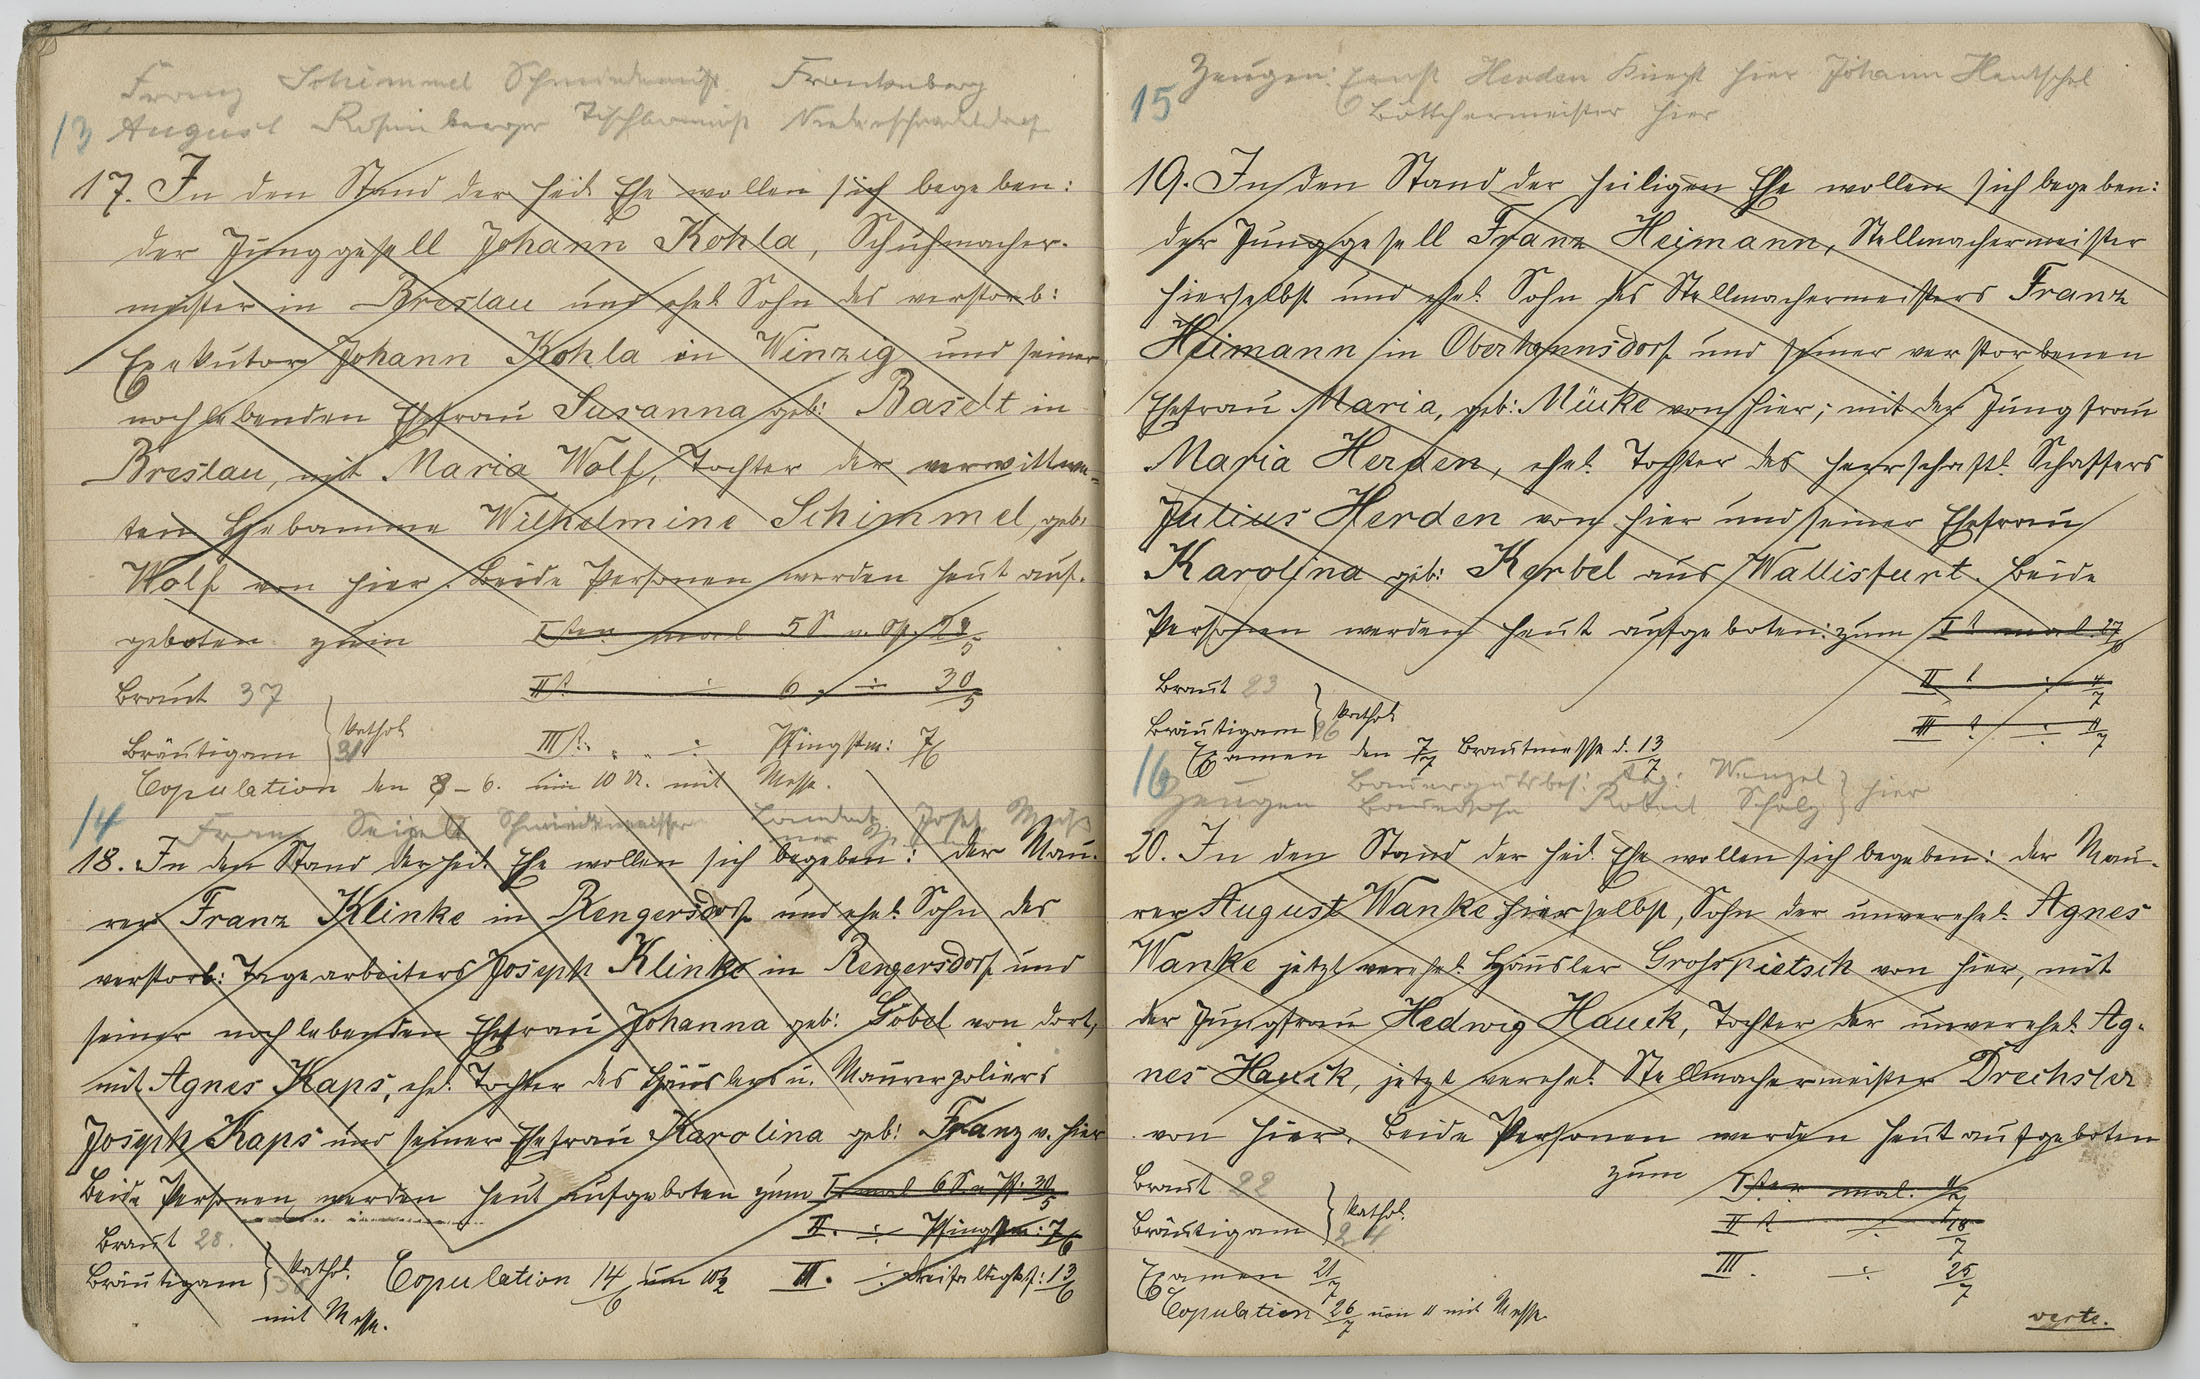 Franz Schimmel Schmiedemeist Frankenberg
13 August Tischlermeist
17. In den Stand der heil. Ehe wollen sich begeben:
der Junggesell Johann Kohla, Schuhmacher-
meister in Breslau und ehel. Sohn des verstorb:
Exekutor Johann Kohla in Winzig und seiner
noch lebenden Ehefrau Susanna geb: Baselt in
Breslau, mit Maria Wolf, Tochter der verwittwe-
ten Hebamme Wilhelmine Schimmel, geb:
Wolf von hier. Beide Personen werden heut auf-
geboten zum Iten mal 5 S. n. Op.
IIt. ÷ 6 ÷ 30/5
Braut 37
Bräutigam 31 } kathol.
IIIt. " " ÷ Pfingstm: 7/6
Copulation den 8-6. um 10 U. mit Messe.
14 Franz Seipelt Schmiedemeister Josef
18. In den Stand der heil. Ehe wollen sich begeben: der Mau-
rer Franz Klinke in Rengersdorf und ehel. Sohn des
verstorb: Tagearbeiters Joseph Klinke in Rengersdorf und
seiner noch lebenden Ehefrau Johanna geb: Göbel von dort,
mit Agnes Kaps, ehel. Tochter des Häuslers u. Maurerpoliers
Joseph Kaps und seiner Ehefrau Karolina geb: Franz v. hier
Beide Personen werden heut aufgeboten zum I. mal 6 S. n. 30/5
II. ÷ Pfingstm: 7/6
Braut 28.
Bräutigam } kathol. Copulation 14/6 um 10½ III. ÷ Dreifaltigkt: 13/6
mit Messe.
Zeugen: Ernst Herden Knecht hier Johann Hentschel
15 Böttchermeister hier
19. In den Stand der heiligen Ehe wollen sich begeben:
der Junggesell Franz Heimann, Stellmachermeister
hierselbst und ehel. Sohn des Stellmachermeisters Franz
Heimann in Oberhannsdorf und seiner verstorbenen
Ehefrau Maria, geb: Mücke von hier; mit der Jungfrau
Maria Herden, ehel. Tochter des herrschaftl. Schaffers
Julius Herden von hier und seiner Ehefrau
Karolina geb: Kerbel aus Wallisfurt. Beide
Personen werden heut aufgeboten: zum It mal 27/6
Braut 23
II t ÷ 4/7
Bräutigam 26 } kathol.
III t ÷ 11/7
Examen den 7/7 Brautmesse d. 13/7
16 Zeugen Bauergutsbes: Aug: Wenzel
Bauersohn Robert Scholz } hier
20. In den Stand der heil. Ehe wollen sich begeben: der Mau-
rer August Wanke hierselbst, Sohn der unverehel. Agnes
Wanke jetzt verehel. Häusler Grosspietsch von hier, mit
der Jungfrau Hedwig Hauck, Tochter der unverehel. Ag-
nes Hauck, jetzt verehel. Stellmachermeister Drechsler
von hier. Beide Personen werden heut aufgeboten
zum Iten mal. 11/7
Braut 22
Bräutigam 24 } kathol.
II t ÷ 18/7
Examen 21/7
III. ÷ 25/7
Copulation 26/7 um 11 mit Messe.
verte.